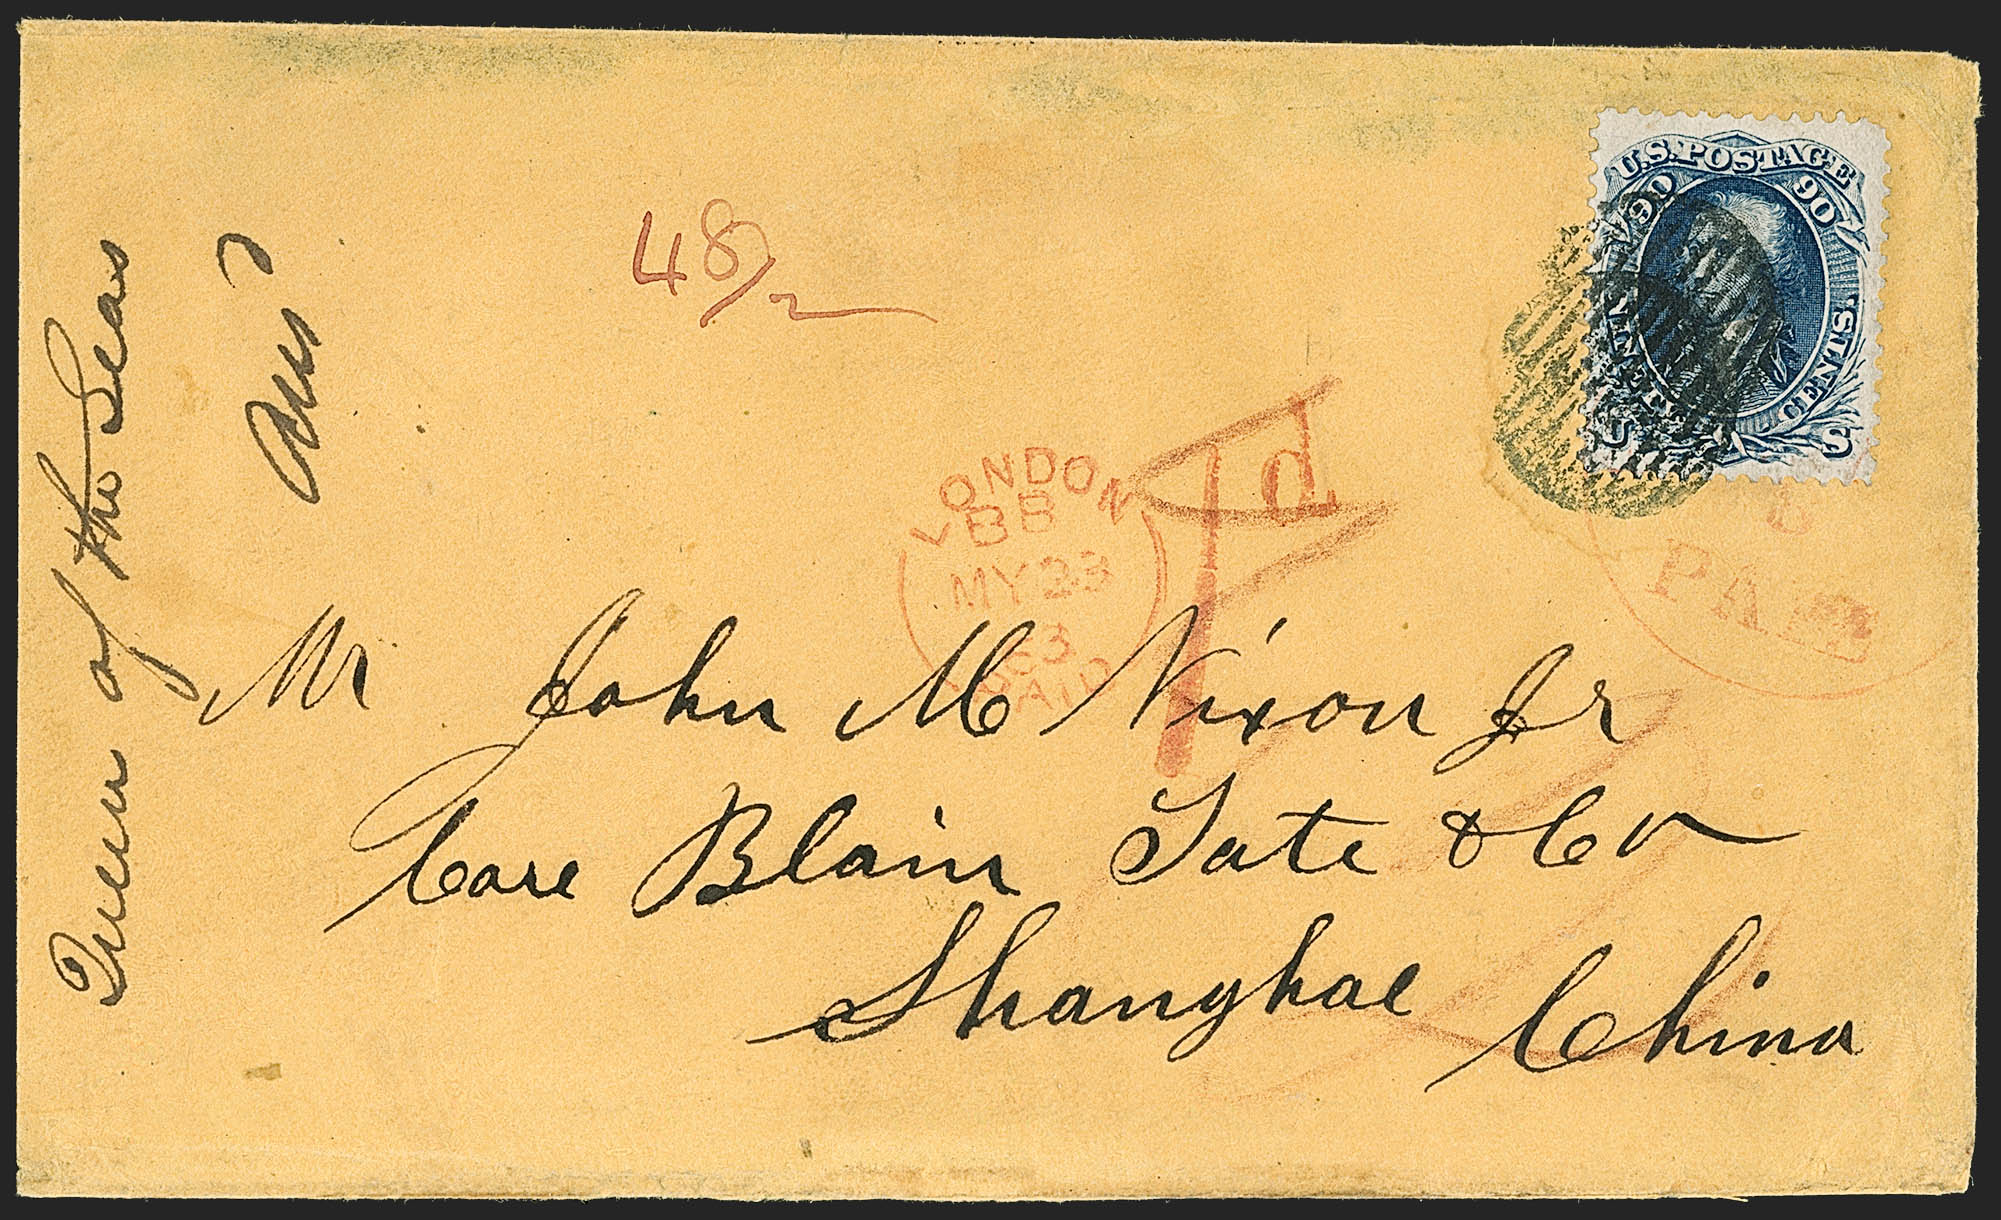 Queen of the Seas
48/2
U.S. POSTAGE
90 90
NINETY CENTS
U S
LONDON
BB
MY 23
63
PAID
1d
PAID
Mr John M Nixon Jr
Care Blain Tate & Co
Shanghae
China